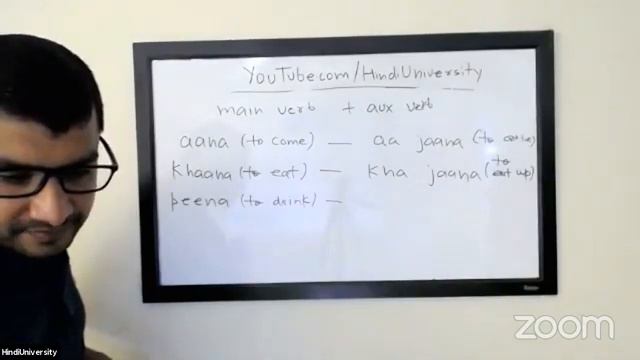 YouTube.com/HindiUniversity
main verb + aux verb
aana (to come) — aa jaana (to arrive)
khaana (to eat) — kha jaana (to eat up)
peena (to drink) —
zoom
HindiUniversity